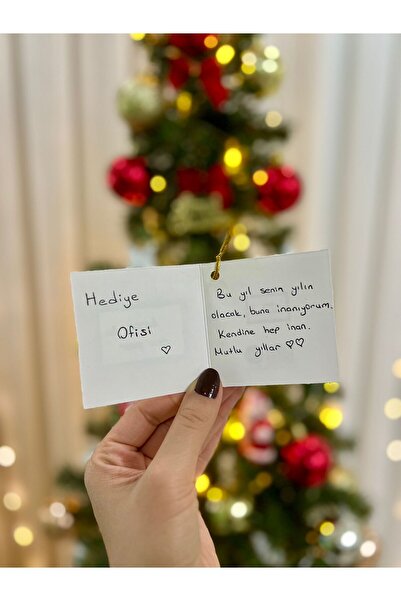 Hediye
Ofisi
♡
Bu yıl senin yılın
olacak, buna inanıyorum.
Kendine hep inan.
Mutlu yıllar ♡♡